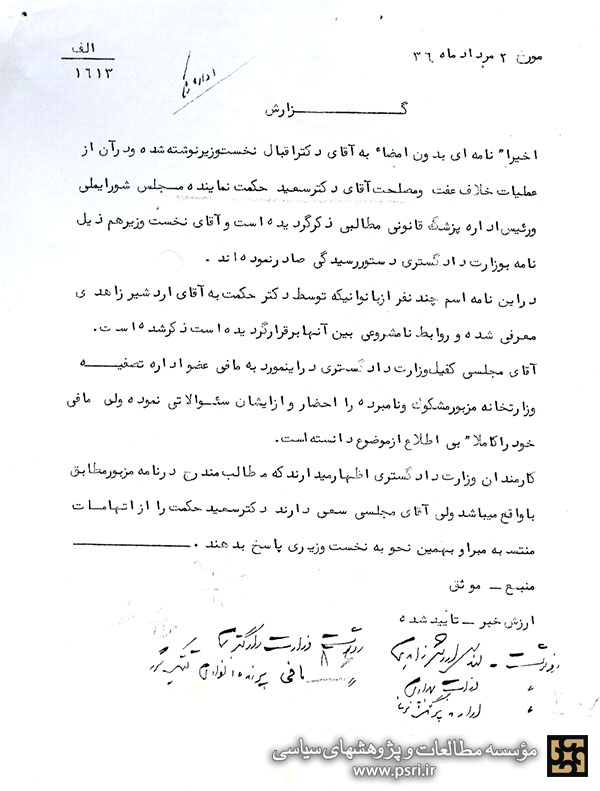 مورخ ۲ مرداد ماه ۳۶
الف
۱۶۱۳
اداره
گزارش
اخیرا" نامه ای بدون امضاء به آقای دکتر اقبال نخست وزیر نوشته شده و در آن از
عملیات خلاف عفت و مصلحت آقای دکتر سعید حکمت نماینده مجلس شورایملی
و رئیس اداره پزشگ قانونی مطالبی ذکر گردیده است و آقای نخست وزیر هم ذیل
نامه بوزارت دادگستری دستور رسیدگی صادر نموده اند .
در این نامه اسم چند نفر از بانوانیکه توسط دکتر حکمت به آقای اردشیر زاهدی
معرفی شده و روابط نامشروعی بین آنها برقرار گردیده است ذکر شده است .
آقای مجلسی کفیل وزارت دادگستری در اینمورد به مافی عضو اداره تصفیه
وزارتخانه مزبور مشکوک و نامبرده را احضار و از ایشان سئوالاتی نموده ولی مافی
خود را کاملا" بی اطلاع از موضوع دانسته است.
کارمندان وزارت دادگستری اظهار میدارند که مطالب مندرج در نامه مزبور مطابق
با واقع میباشد ولی آقای مجلسی سعی دارند دکتر سعید حکمت را از اتهامات
منتسبه مبرا و بهمین نحو به نخست وزیری پاسخ بدهند .
منبع - موثق
ارزش خبر - تایید شده
رونوشت وزارت دادگستری
رونوشت - اردشیر زاهدی
" مافی پرونده انفرادی
اداره پزشگی
مؤسسه مطالعات و پژوهشهای سیاسی
www.psri.ir